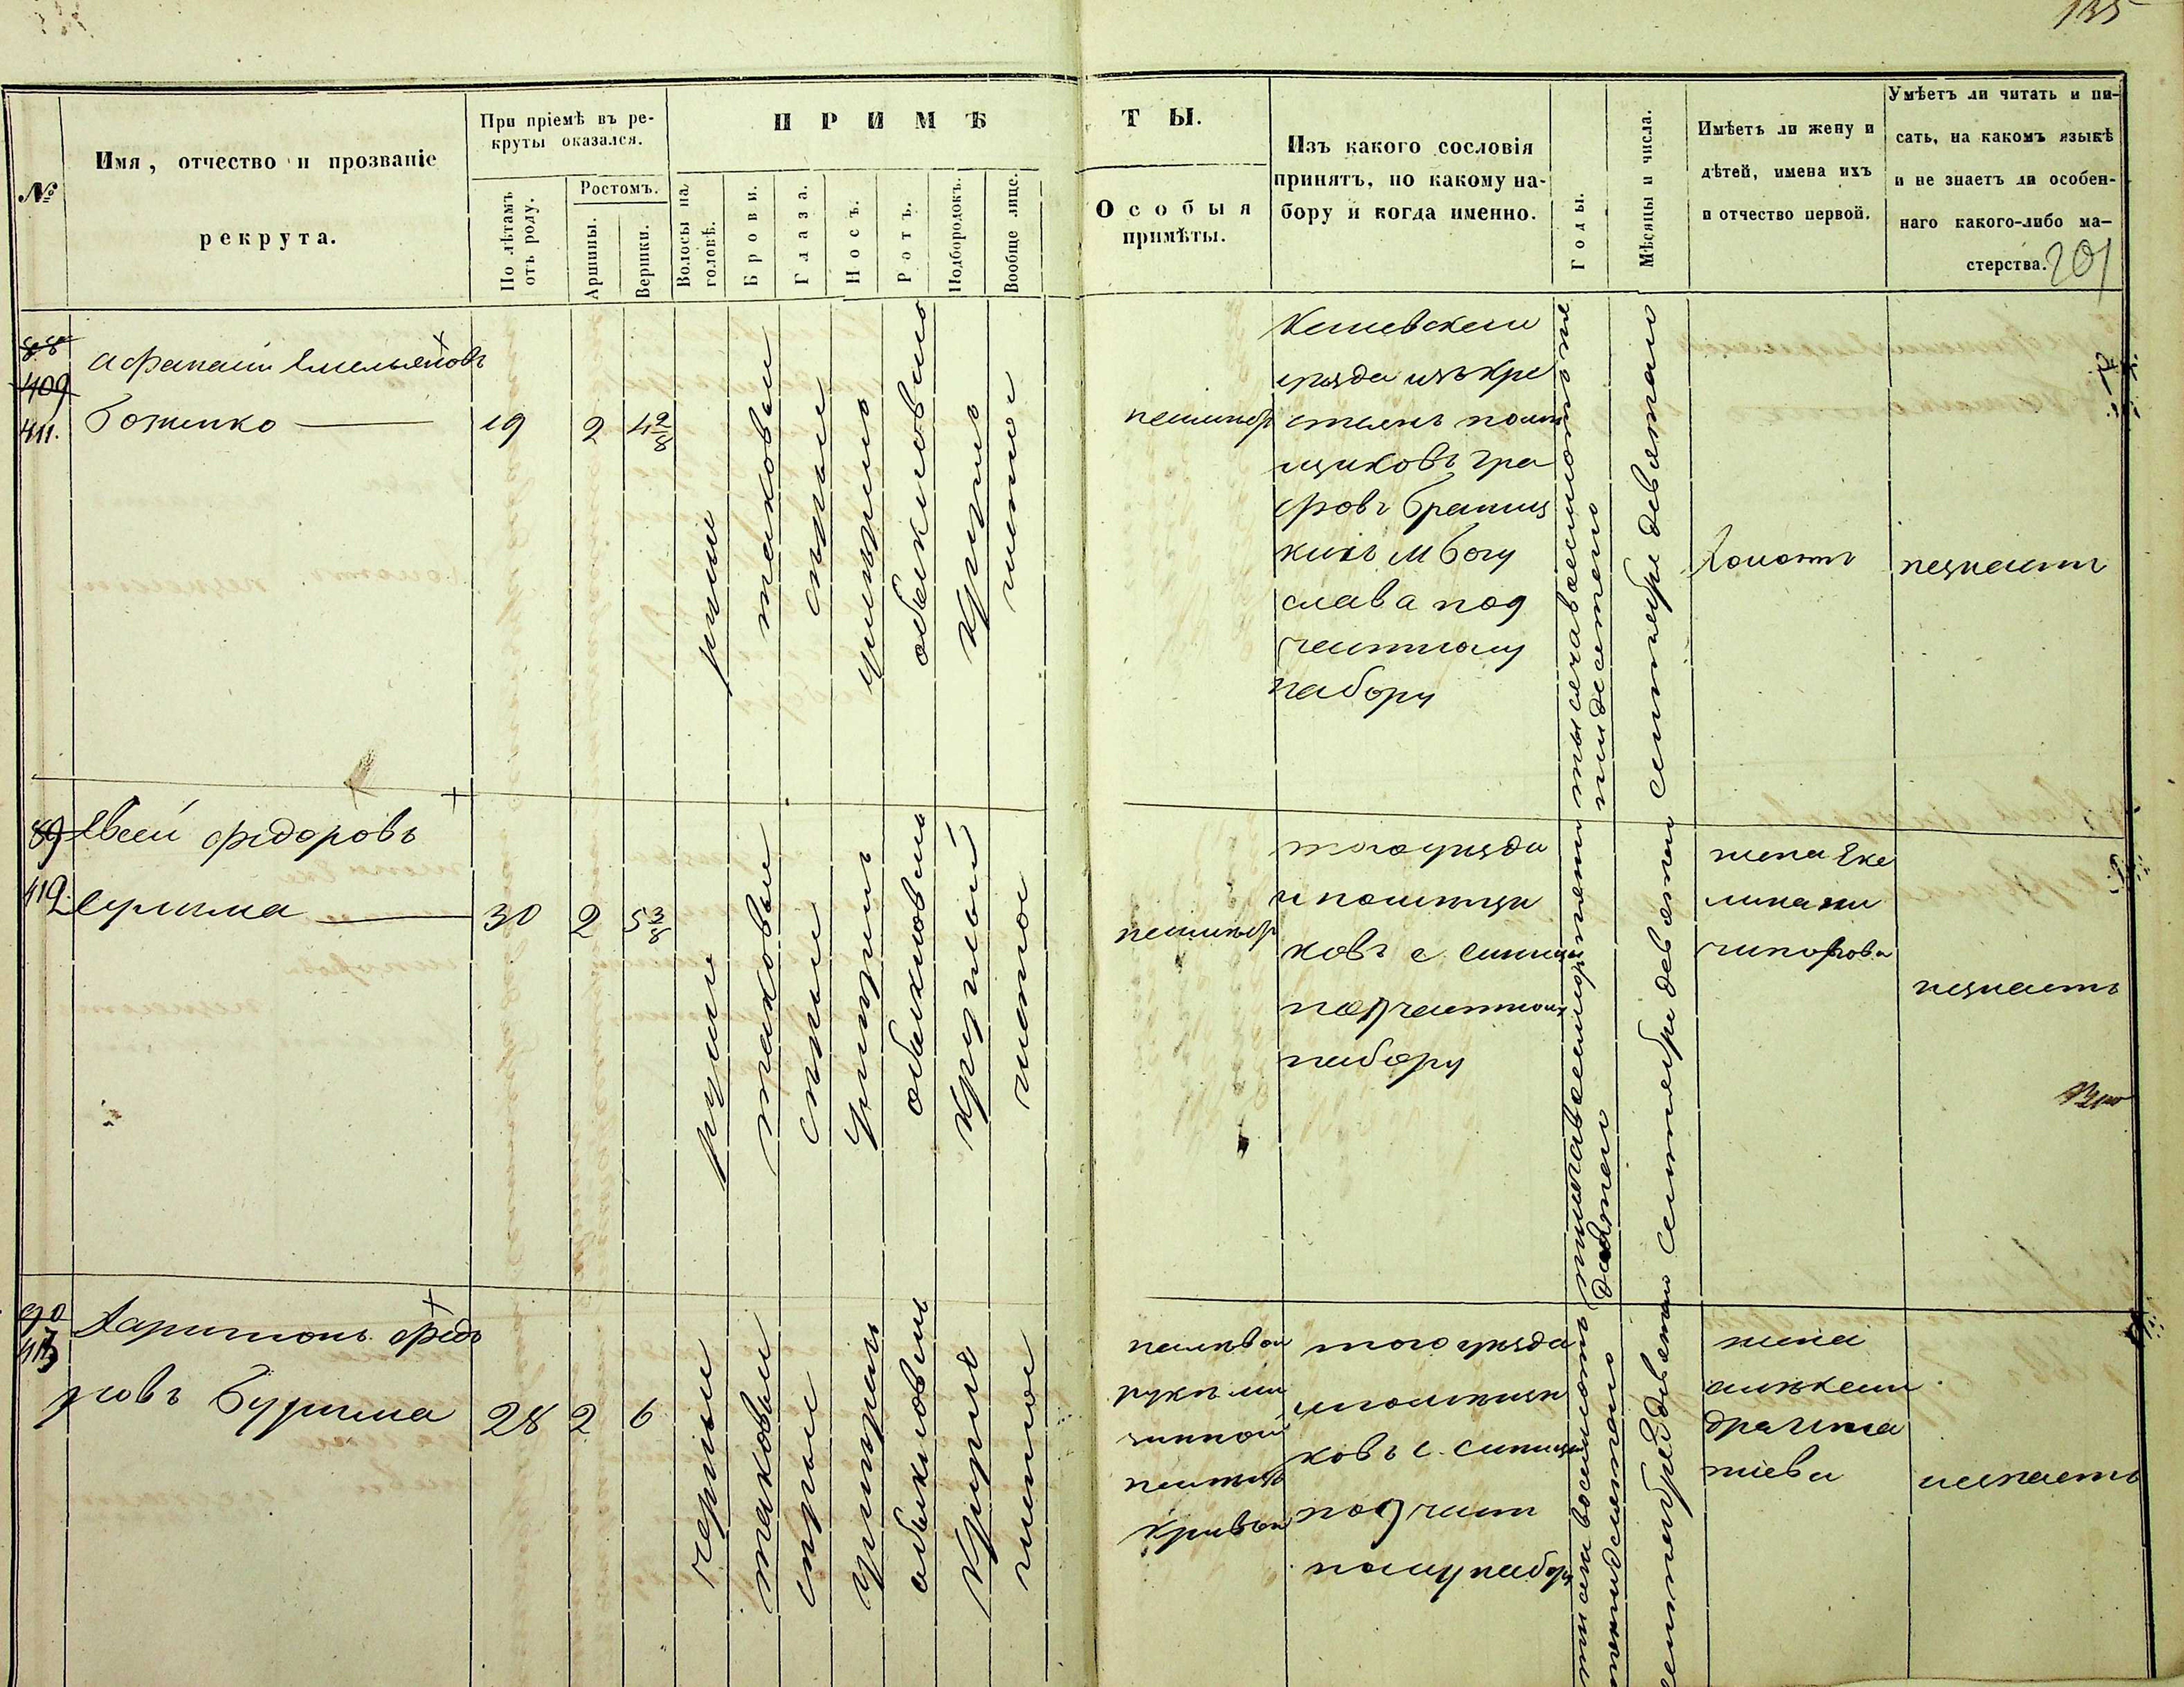 135
№
Имя, отчество и прозваніе
рекрута.
При пріемѣ въ ре-
круты оказался.
По лѣтамъ
отъ роду.
Ростомъ.
Аршины.
Вершки.
ПРИМѢ
Волосы на
головѣ.
Брови.
Глаза.
Носъ.
Ротъ.
Подбородокъ.
Вообще лице.
ТЫ.
Особыя
примѣты.
Изъ какого сословія
принятъ, по какому на-
бору и когда именно.
Годы.
Мѣсяцы и числа.
Имѣетъ ли жену и
дѣтей, имена ихъ
и отчество первой.
Умѣетъ ли читать и пи-
сать, на какомъ языкѣ
и не знаетъ ли особен-
наго какого-либо ма-
стерства.
201
88
409
411.
Афанасій Емельяновъ
Боженко
19
2
4 2/8
русые
таковые
сѣрые
умѣренно
обыкновенно
кругло
чистое
неимѣетъ
уѣзда изъ кре
стьянъ помѣ
щиковъ гра
фовъ Браниц
кихъ М Богу
слава под
частному
набору
тысяча восемьсотъ пя
тидесятаго
Сентября девятаго
Холостъ
незнаетъ
89
412
Евсей Федоровъ
30
2
5 3/8
русые
таковые
сѣрые
умѣренъ
обыкновенъ
круглый
чистое
неимѣетъ
того уѣзда
и помѣщи
ковъ с.
под частному
набору
Сентября девятаго
жена Ека
незнаетъ
90
413
Харитонъ Федо
ровъ
28
2
6
черные
таковые
сѣрые
умѣренъ
обыкновенъ
кругло
чистое
на лѣвой
рукѣ ми
зинной
палецъ
кривой
того уѣзда
и помѣщи
ковъ с.
под част
ному набору
тысяча восемьсотъ
пятидесятаго
Сентября девятаго
жена
незнаетъ